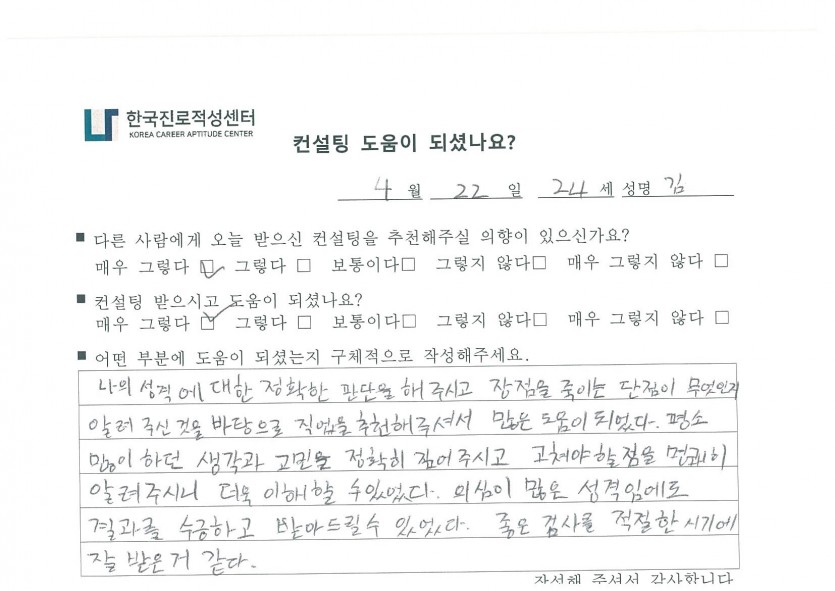 한국진로적성센터
KOREA CAREER APTITUDE CENTER
컨설팅 도움이 되셨나요?
4 월 22 일 24 세 성명 김
■ 다른 사람에게 오늘 받으신 컨설팅을 추천해주실 의향이 있으신가요?
매우 그렇다 ☑ 그렇다 □ 보통이다□ 그렇지 않다□ 매우 그렇지 않다 □
■ 컨설팅 받으시고 도움이 되셨나요?
매우 그렇다 ☑ 그렇다 □ 보통이다□ 그렇지 않다□ 매우 그렇지 않다 □
■ 어떤 부분에 도움이 되셨는지 구체적으로 작성해주세요.
나의 성격에 대한 정확한 판단을 해주시고 장점을 죽이는 단점이 무엇인지
알려 주신것을 바탕으로 직업을 추천해주셔서 많은 도움이 되었다. 평소
많이 하던 생각과 고민을 정확히 짚어주시고 고쳐야할점을 명쾌히
알려주시니 더욱 이해할 수있었다. 의심이 많은 성격임에도
결과를 수긍하고 받아드릴수 있었다. 좋은 검사를 적절한 시기에
잘 받은거 같다.
작성해 주셔서 감사합니다